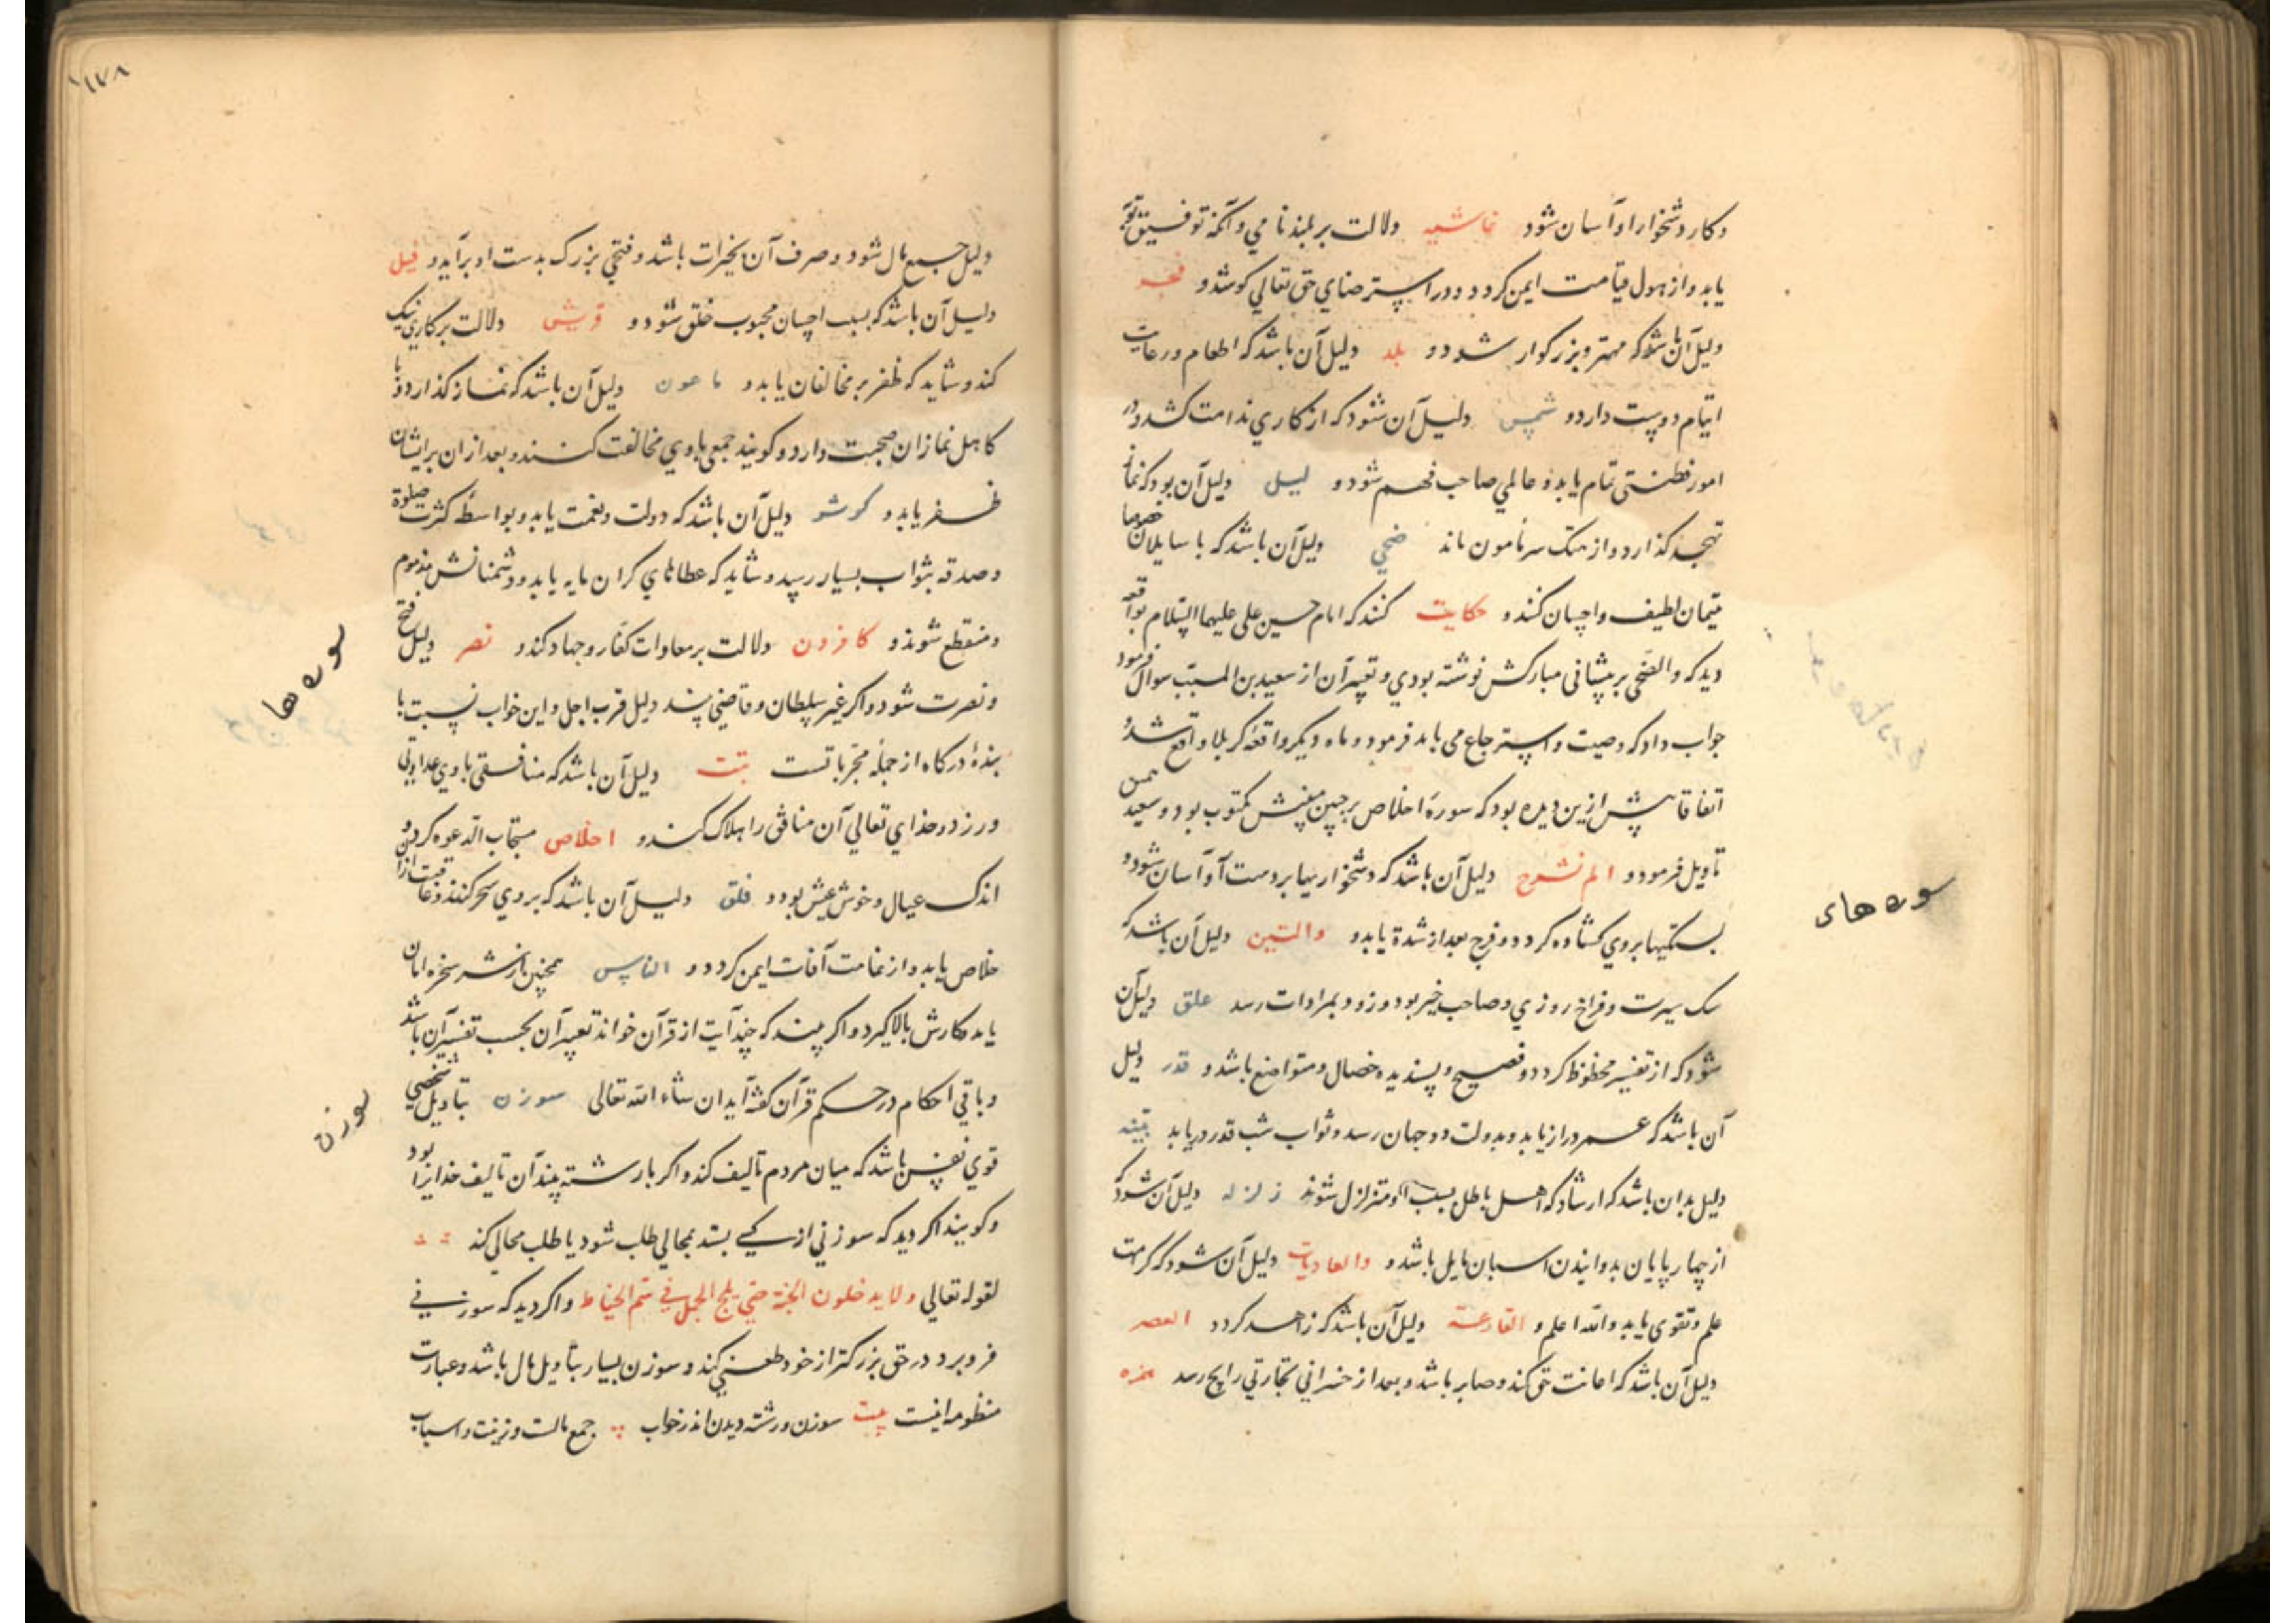 و کار دشخوار او آسان شود غاشیه دلالت بر بلند نامي و آنکه توفیق توبه
یابد و از هول قیامت ایمن کردد و در راستر ضای حق تعالي کوشد و فجر
دلیل آن باشد که مهتر و بزرکوار شود و بلد دلیل آن باشد که اطعام و رعایت
ایتام دوست دارد و شمس دلیل آن شود که از کاري ندامت کشد و در
امور فطنتی تمام یابد و عالمي صاحب فهم شود و لیل دلیل آن بود که نماز
تهجد کذارد و از هتک سر مامون ماند ضحي دلیل آن باشد که با سایلان خصوصا
یتیمان لطیف و احسان کند و حکایت کنند که امام حسین علی علیهما السلام بواقعه
دید که والضحی بر پیشانی مبارکش نوشته بودي و تعبیر آن از سعید بن المسیب سوال فرمود
جواب داد که وصیت و استرجاع می باید فرمود و ماه دیکر واقعه کربلا واقع شد
اتفاقا پیش ازین دیده بود که سوره اخلاص بر جبین مکتوب بود و سعید همین
تاویل فرمود و الم نشرح دلیل آن باشد که دشخواریها بر دست او آسان شود و
بستکیها بروي کشاده کردد و فرج بعد از شدة یابد و والتین دلیل آن باشد که
نیک سیرت و فراخ روزي و صاحب خیر بود و زود بمرادات رسد علق دلیل آن
شود که از تفسیر محظوظ کردد و فصیح و پسندیده خصال و متواضع باشد و قدر دلیل
آن باشد که عمر دراز یابد و بدولت دو جهان رسد و ثواب شب قدر دریابد بینه
دلیل بدان باشد که ارشاد که اهل باطل بسبب او متزلزل شوند زلزله دلیل آن شود که
از چهارپایان بدوانیدن اسبان مایل باشد و والعادیات دلیل آن شود که کرامت
علم و تقوی یابد والله اعلم و القارعة دلیل آن باشد که زاهد کردد العصر
دلیل آن باشد که اعانت حق کند و صابر باشد و بعد از خسرانی تجارتي رابح رسد همزه
سوره های
۱۷۸
دلیل جمیع مال شود و صرف آن بخیرات باشد و فتحي بزرک بدست او برآید و فیل
دلیل آن باشد که بسبب احسان محبوب خلق شود و قریش دلالت بر کاري نیک
کند و شاید که ظفر بر مخالفان یابد و ماعون دلیل آن باشد که نماز کذارد و با
کاهل نمازان صحبت دارد و کویند جمعي باوي مخالفت کنند و بعد از ان بر ایشان
ظفر یابد و کوثر دلیل آن باشد که دولت و نعمت یابد و بواسطه کثرت صلوة
و صدقه بثواب بسیار رسد و شاید که عطاهاي کران مایه یابد و دشمنانش مذموم
و منقطع شوند و کافرون دلالت بر معادات کفار و جهاد کند و نصر دلیل فتح
و نصرت شود و اکر غیر سلطان و قاضي بیند دلیل قرب اجل و این خواب نسبت با
بنده درکاه از جمله مجرباتست تبت دلیل آن باشد که منافقی باوي عداوتي
ورزد و خداي تعالي آن منافق را هلاک کند و اخلاص مستجاب الدعوه کردد و
اندک عیال و خوش عیش بود و فلق دلیل آن باشد که بروي سحر کنند و عاقبت ازان
خلاص یابد و از غامت آفات ایمن کردد و الناس همچنین از شر سخره امان
یابد و کارش بالا کیرد و اکر بیند که چند آیت از قرآن خواند تعبیر آن بحسب تفسیر آن باشد
و باقي احکام در حکم قرآن کفته آید ان شاء الله تعالی سوزن بتاویل شخصي
قوي نفس باشد که میان مردم تالیف کند و اکر با رشته بیند آن تالیف خدایرا بود
و کویند اکر دید که سوزني از کسي بستد بمجالي طلب شود یا طلب محالي کند
لقوله تعالي ولا یدخلون الجنة حتي یلج الجمل في سم الخیاط و اکر دید که سوزني
فرو برد در حق بزرکتر از خود طعني کند و سوزن بسیار بتاویل مال باشد و عبارت
منظومه اینست بیت سوزن و رشته دیدن اندر خواب جمع مالست و زینت و اسباب
سوره ها
سوزن